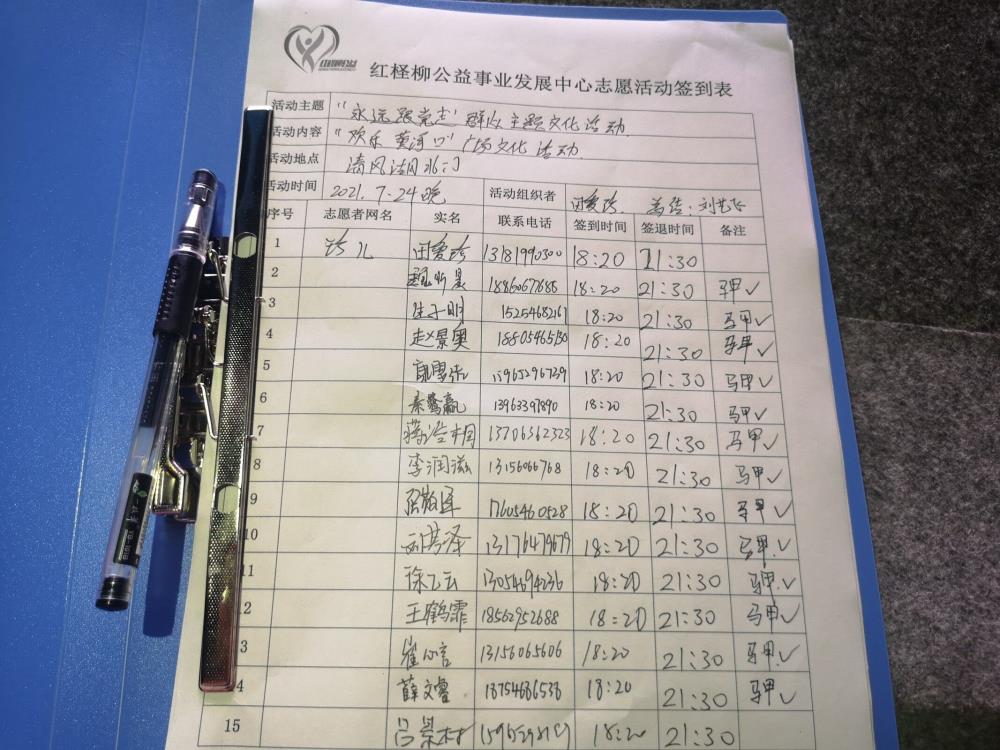 红柽柳公益事业发展中心志愿活动签到表
活动主题 "永远跟党走"群众主题文化活动.
活动内容 "欢乐黄河口"广场文化活动.
活动地点 清风湖水门
活动时间 2021.7.24晚 活动组织者
序号 志愿者网名 实名 联系电话 签到时间 签退时间 备注
1 珍儿 13181990300 18:20 21:30
2 18860677688 18:20 21:30 马甲✓
3 15254682167 18:20 21:30 马甲✓
4 赵景奥 18805465130 18:20 21:30 马甲✓
5 15965296739 18:20 21:30 马甲✓
6 13963397890 18:20 21:30 马甲✓
7 13706362323 18:20 21:30 马甲✓
8 李润滋 13156066768 18:20 21:30 马甲✓
9 17605460528 18:20 21:30 马甲✓
10 13176479679 18:20 21:30 马甲✓
11 13054694236 18:20 21:30 马甲✓
2 王鹤霏 18562952688 18:20 21:30 马甲✓
3 崔心言 13156065606 18:20 21:30 马甲✓
4 薛文睿 18754686538 18:20 21:30 马甲✓
15 18:20 21:30